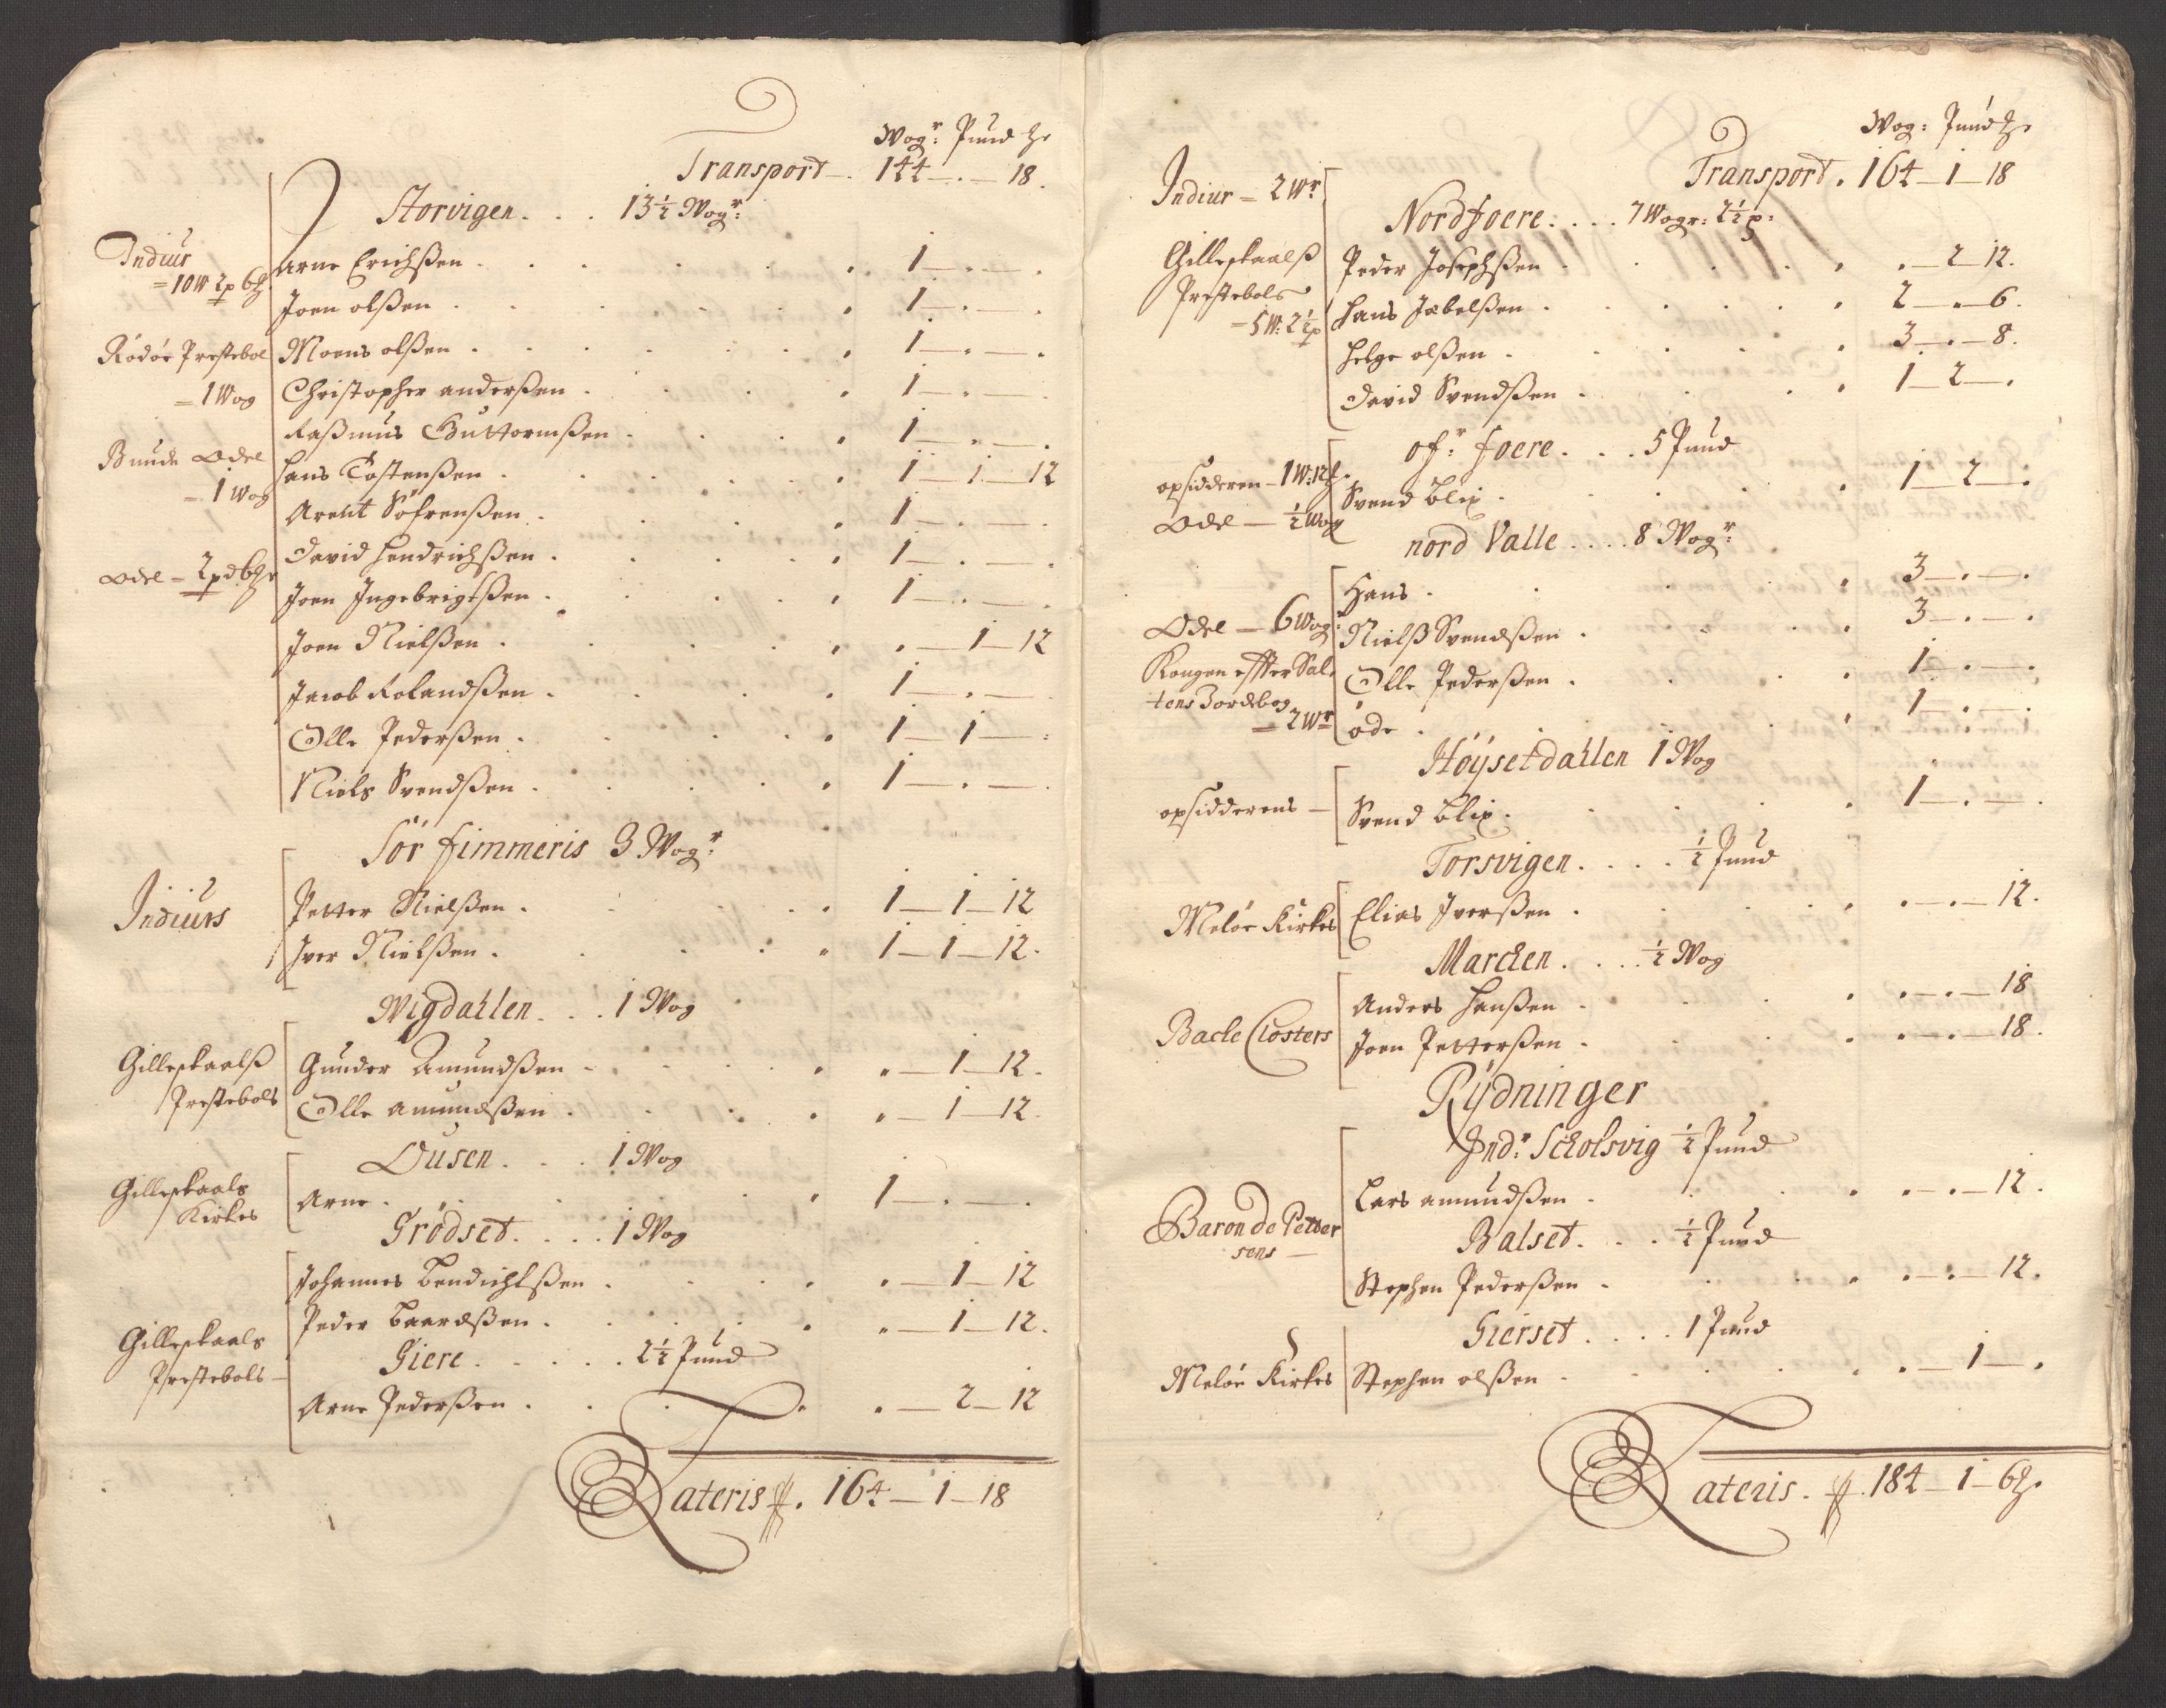 Wog:r Pund ℔r
Transport - . 144 - . - 18.
Storvigen . . . 13 1/2 Wog:r
Indiur
= 10 W 2 p 6 ℔.
Arne Erichsßen . . . 1 - . - .
Joen olßen . . . 1 - . - .
Rödöe Prestebol
= 1 Wog
Moens olßen . . . 1 - . - .
Christopher anderßen . . . 1 - . - .
Raßmus Guttormßen . . . 1 - . - .
Bunde Odel
- 1 Wog
Hans Tostenßen . . . 1 - 1 - 12
Arent Söfrenßen . . . 1 - . - .
Odel - 2 pd 6 ℔r
David Hendrichßen . . . 1 - . - .
Joen Ingebrigtßen . . . 1 - . - .
Joen Nielßen . . . . - 1 - 12
Jacob Rolandßen . . . 1 - . - .
Olle Pederßen . . . 1 - 1 - .
Niels Svendßen . . . 1 - . - .
Sör fimmeris 3 Wog:r
Indiurs
Petter Nielßen . . . 1 - 1 - 12
Iver Nielßen . . . 1 - 1 - 12.
Wigdahlen . . . 1 Wog
Gilleskaalß
Prestebols
Gunder Amundßen . . . . - 1 - 12.
Olle amundßen . . . . - 1 - 12.
Ousen . . . 1 Wog
Gilleskaals
Kirkes
Arne . . . 1 - . - .
Grödset . . . . 1 Wog
Johannes Bendichtßen . . . . - 1 - 12
Peder Baardßen . . . . - 1 - 12.
Gilleskaals
Prestebols -
Giere . . . . 2 1/2 Pund
Arne Pederßen . . . . - 2 - 12
Lateris . 164 - 1 - 18
Wog: Pund ℔r
Transport . 164 - 1 - 18
Indiur = 2 Wr
Nordfoere . . . . 7 Wogr: 2 1/2 p:
Gilleskaalß
Prestebols
= 5 W: 2 1/2 p
Peder Josephßen . . . . - 2 - 12.
Hans Jabelßen . . . 2 - . - 6.
Helge olßen . . . 3 - . - 8.
David Svendßen . . . 1 - 2 - .
of:r foere . . . 5 Pund
opsidderen - 1 W: 12 ℔.
Odel - 1/2 Wog
Svend Blix . . . 1 - 2 - .
nord Valle . . . . 8 Wog:r
Hans . . . 3 - . - .
Odel - 6 Wog:r
Nielß Svendßen . . . 3 - . - .
Kongen effter Sal-
tens Jordebog
= 2 Wr
Olle Pederßen . . . 1 - . - .
öde . . . 1 - . - .
Höÿsetdahlen 1 Wog
opsidderens -
Svend Blix . . . 1 - . - .
Torsvigen . . . . 1/2 Pund
Melöe Kirkes
Elias Iverßen . . . . - . - 12.
Marcken . . . . 1/2 Wog
Bacle Closters
Anders Hanßen . . . . - . - 18
Joen Petterßen . . . . - . - 18.
Rÿdninger
Ind:r Scholsvig 1/2 Pund
Baron de Petter
sens -
Lars amundßen . . . . - . - 12.
Balset . . . 1/2 Pund
Stephen Pederßen . . . . - . - 12.
Gierset . . . . 1 Pund
Melöe Kirkes
Stephen olßen . . . . - 1 - .
Lateris . 184 - 1 - 6 ℔.